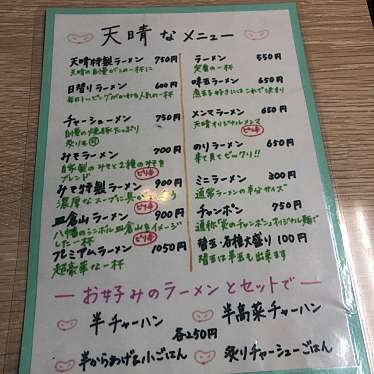 天晴なメニュー
天晴特製ラーメン 750円
天晴の自慢がこの一杯に
日替りラーメン 600円
毎日トッピングがかわる人気の一杯
チャーシューメン 750円
自慢の焼豚たっぷり
炙りも
みそラーメン 700円
自家製のみそと2種のみそを
ブレンド ピリ辛
みそ特製ラーメン 900円
濃厚なスープに具が
ピリ辛
皿倉山ラーメン 900円
八幡のシンボル皿倉山をイメージ
した一杯 ピリ辛
プレミアムラーメン 1050円
超豪華な一杯
ラーメン 550円
定番の一杯
味玉ラーメン 650円
煮玉子好きにはこれで決まり
メンマラーメン 650円
天晴オリジナルメンマ
ピリ辛
のりラーメン 650円
来て見てビックリ!!
ミニラーメン 300円
通常ラーメンの半分サイズ
チャンポン 750円
通称"炎のチャンポン"オリジナル麺で
ピリ辛
替玉・各種大盛り 100円
替玉は半玉も出来ます
お好みのラーメンとセットで
半チャーハン
半高菜チャーハン
各250円
半からあげ&小ごはん
炙りチャーシューごはん